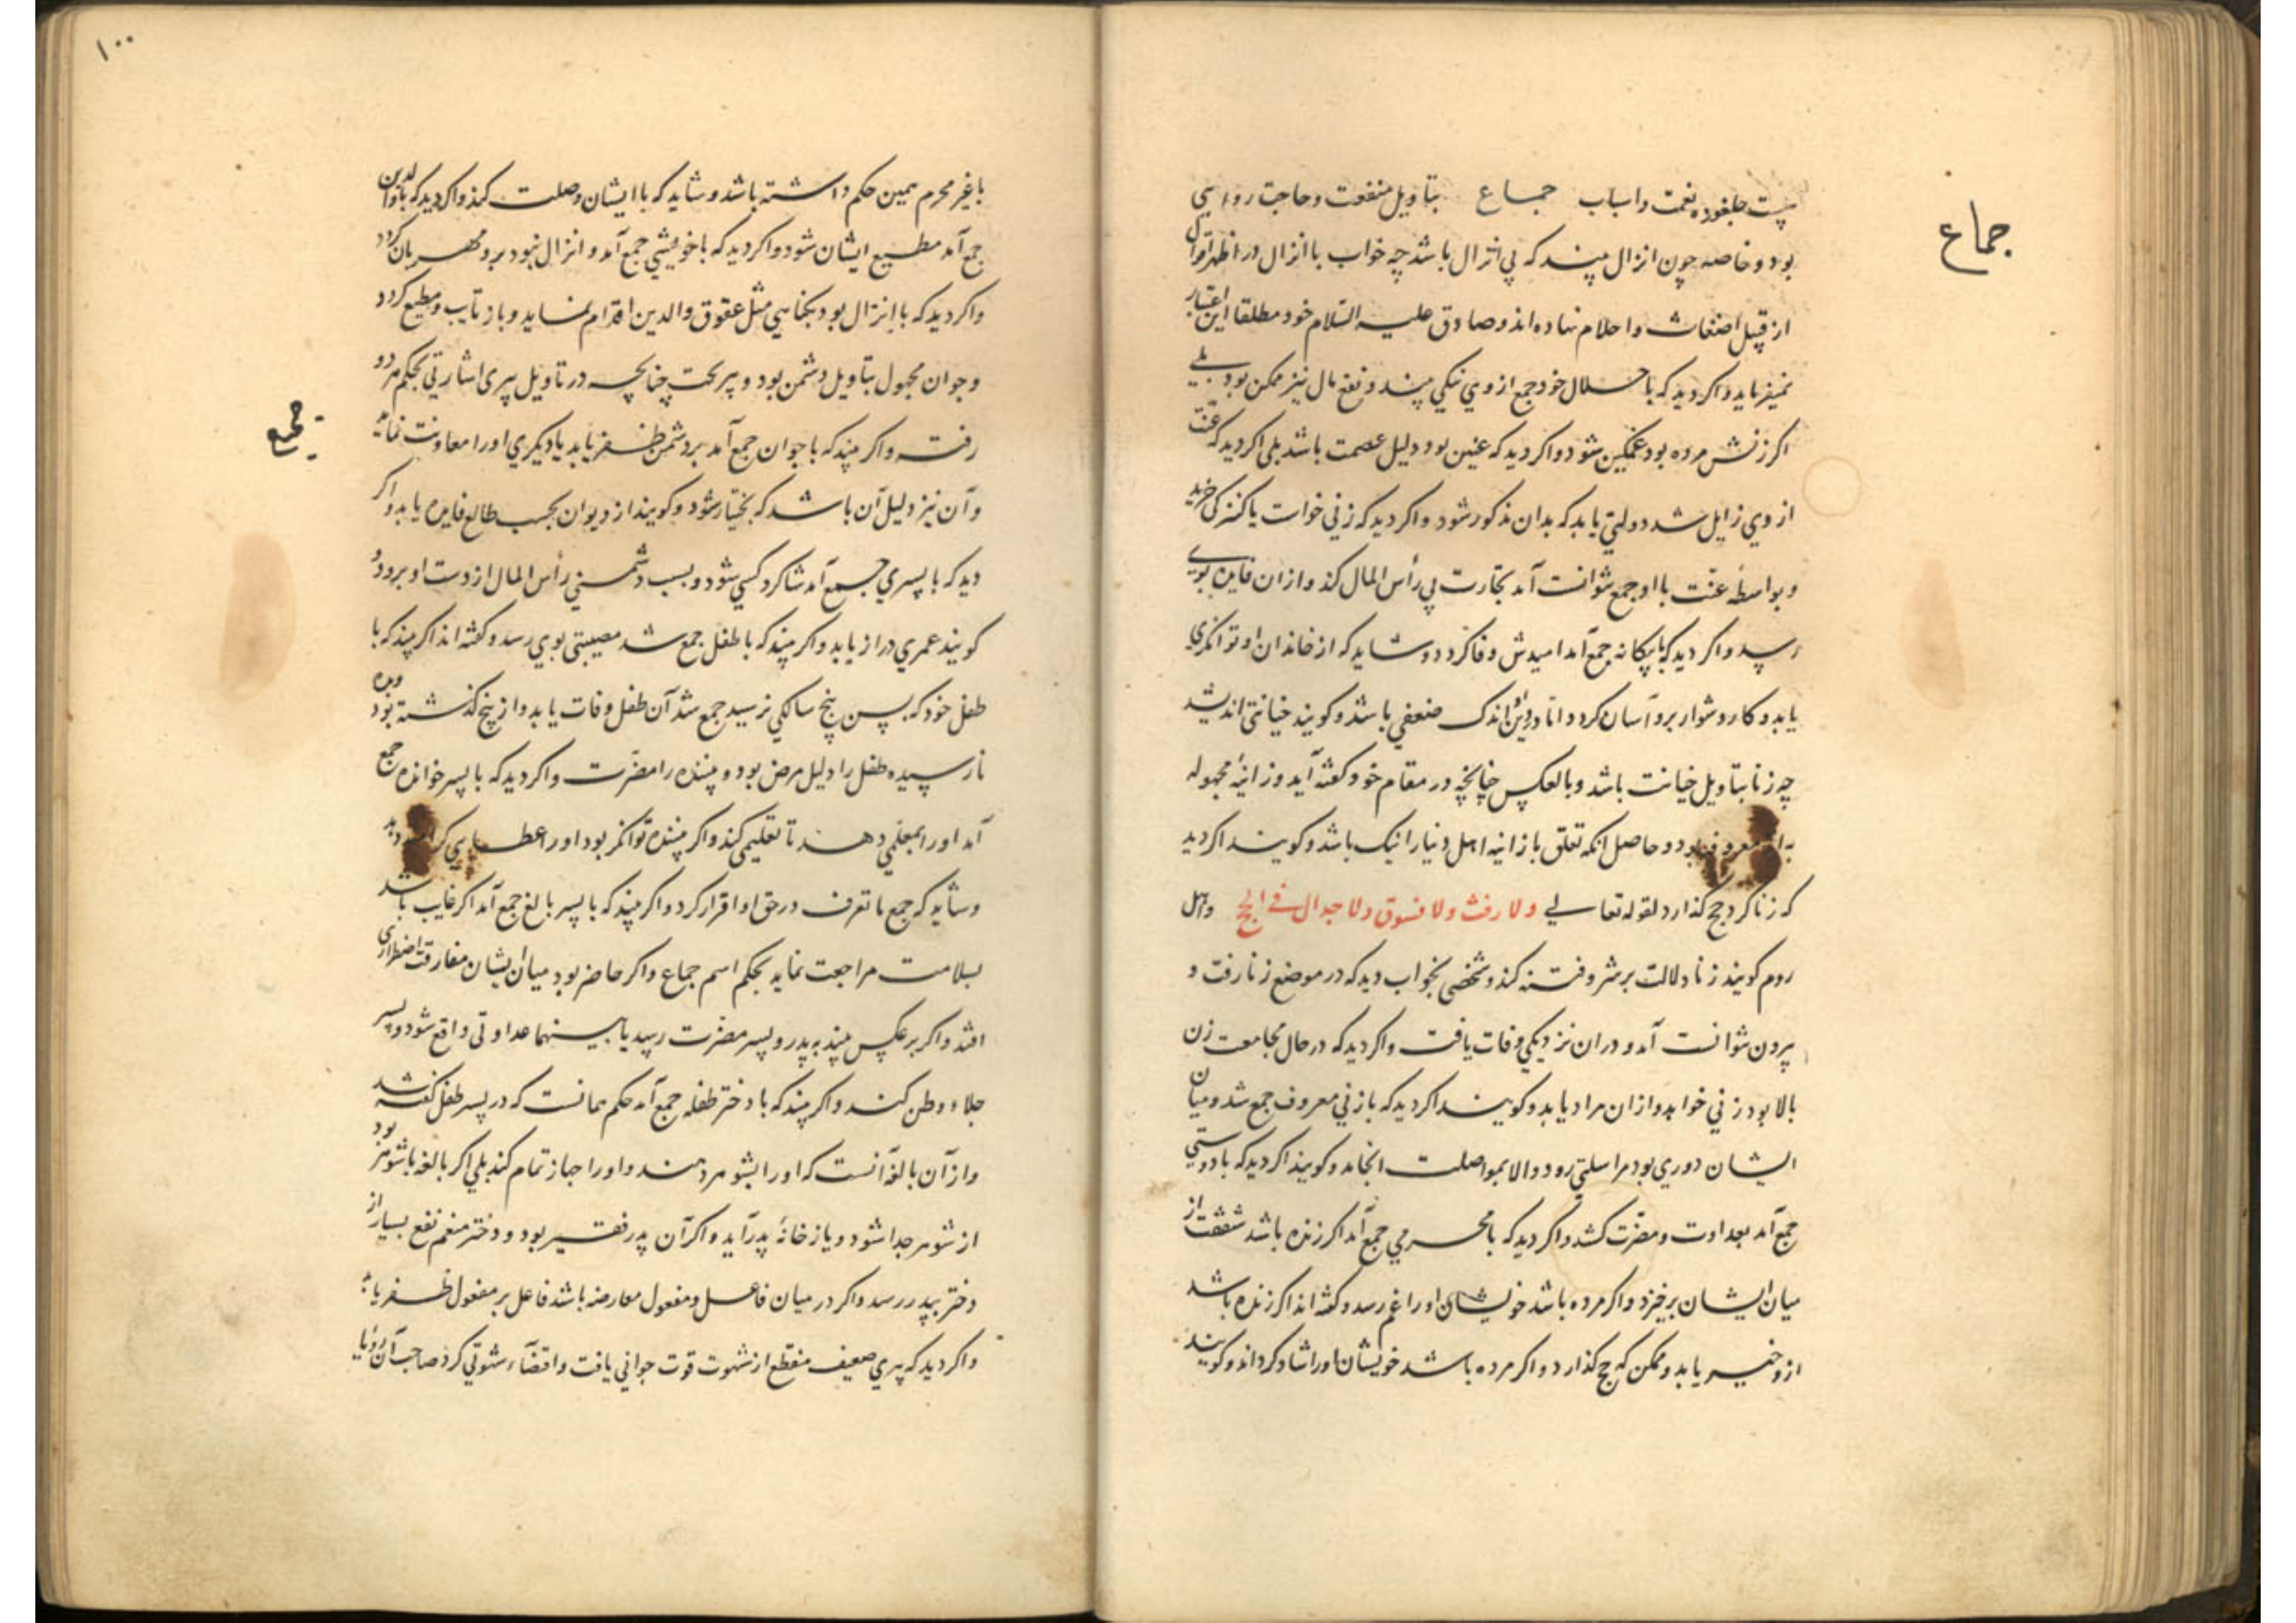 جماع
پست جلغوزه نعمت و اسباب جماع بتاویل منفعت و حاجت روایی
بود و خاصه چون انزال بیند که بی انزال باشد چه خواب با انزال در اظهر اقوال
از قبیل اضغاث و احلام نهاده اند و صادق علیه السلام خود مطلقا این اعتبار
نمیفرماید و اکر دید که با حلال خود جمع از وی نیکی بیند و نفع مال نیز ممکن بود بلی
اکر زنش مرده بود غمکین شود و اکر دید که عنین بود دلیل عصمت باشد بلی اکر دید که عنت
از وی زایل شد دولتی یابد که بدان مذکور شود و اکر دید که زنی خواست یا کنیزکی خرید
و بواسطه عنّت با او جمع نتوانست آمد تجارت بی رأس المال کند و از ان فایده بوی
رسد و اکر دید که با بیکانه جمع آمد امیدش وفا کردد و شاید که از خاندان او توانکری
یابد و کار دشوار برو آسان کردد و اما در دین او اندک ضعفی باشد و کویند خیانتی اندیشد
چه زنا بتاویل خیانت باشد و بالعکس چنانچه در مقام خود کفته آید و زانیهٔ مجهوله
به از معروفه بود و حاصل آنکه تعلق با زانیه اهل دنیا را نیک باشد و کویند اکر دید
که زنا کرد حج کذارد لقوله تعالی ولا رفث ولا فسوق ولا جدال فی الحج و اهل
روم کویند زنا دلالت بر شر و فتنه کند و شخصی بخواب دید که در موضع زنا رفت و
بیرون نتوانست آمد و دران نزدیکی وفات یافت و اکر دید که در حال مجامعت زن
بالا بود زنی خواهد و ازان مراد یابد و کویند اکر دید که با زنی معروف جمع شد و میان
ایشان دوری بود مراسلتی رود و الا بمواصلت انجامد و کویند اکر دید که با دوستی
جمع آمد بعداوت و مضرّت کشد و اکر دید که با محرمی جمع آمد اکر زنده باشد شفقت از
میان ایشان برخیزد و اکر مرده باشد خویشان او را غم رسد و کفته اند اکر زنده باشد
ازو خیر یابد و ممکن که حج کذارد و اکر مرده باشد خویشان او را شاد کرداند و کویند
١٠٠
با غیر محرم همین حکم داشته باشد و شاید که با ایشان وصلت کند و اکر دید که با والدین
جمع آمد مطیع ایشان شود و اکر دید که با خویشی جمع آمد و انزال نبود برو مهربان کردد
و اکر دید که با انزال بود بکناهی مثل عقوق والدین اقدام نماید و باز تایب و مطیع کردد
و جوان مجهول بتاویل دشمن بود و پیر بخت چنانچه در تاویل پیری اشارتی بحکم هر دو
رفت و اکر بیند که با جوان جمع آمد بر دشمن ظفر یابد یا دیکری او را معاونت نماید
و آن نیز دلیل آن باشد که بختیار شود و کویند از دیوان بحسب طالع فایده یابد و اکر
دید که با پسری جمع آمد شاکرد کسی شود و بسبب دشمنی رأس المال از دست او برود و
کویند عمری دراز یابد و اکر بیند که با طفل جمع شد مصیبتی بوی رسد و کفته اند اکر بیند که با
طفل خود که بسن پنج سالکی نرسید جمع شد آن طفل وفات یابد و از پنج کذشته بود و به ده
نارسیده طفل را دلیل مرض بود و بیننده را مضرّت و اکر دید که با پسر خوانده جمع
آمد او را بمعلمی دهند تا تعلیمی کند و اکر بیننده توانکر بود او را عطایی
و شاید که جمع ما تعرف در حق او اقرار کرد و اکر بیند که با پسر بالغ جمع آمد اکر غایب باشد
بسلامت مراجعت نماید بحکم اسم جماع و اکر حاضر بود میان ایشان مفارقت اضطراری
افتد و اکر بر عکس بیند به پدر و پسر مضرّت رسد یا بینهما عداوتی واقع شود و پسر
جلاء وطن کند و اکر بیند که با دختر طفله جمع آمد حکم همانست که در پسر طفل کفته شد
و از آن بالغه آنست که او را بشوهر دهند و او را جهاز تمام کند بلی اکر بالغه با شوهر بود
از شوهر جدا شود و باز خانهٔ پدر آید و اکر آن پدر فقیر بود و دختر منعم نفع بسیار از
دختر بپدر رسد و اکر در میان فاعل و مفعول معارضه باشد فاعل بر مفعول ظفر یابد
و اکر دید که پیری ضعیف منقطع از شهوت قوت جوانی یافت و اقتضاء شهوتی کرد صاحب آن رؤیا